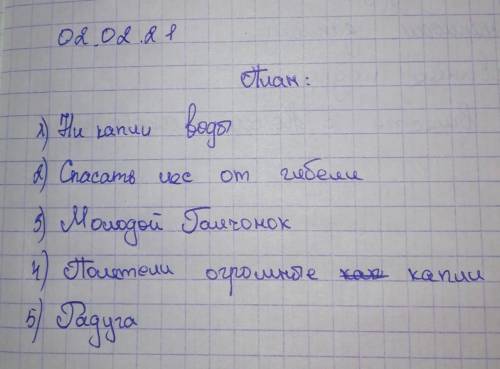 02.02.21
План:
1) Ни капли воды
2) Спасать лес от гибели
3) Молодой Галчонок
4) Полетели огромные капли
5) Радуга